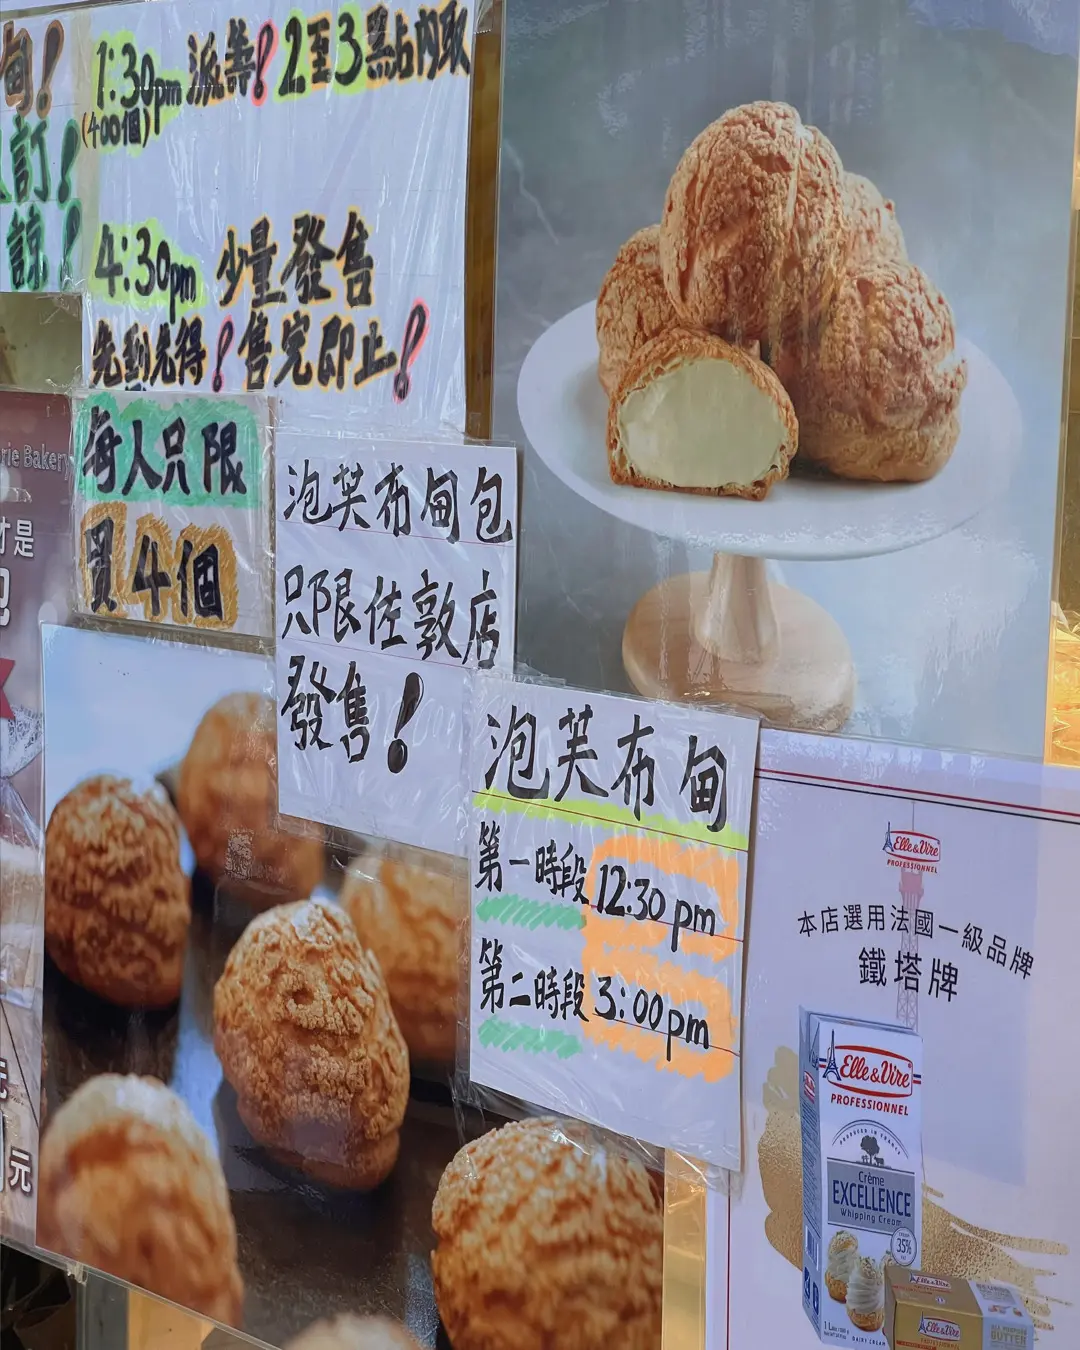 甸!
訂!
諒!
1:30pm 派籌! 2至3點內取
(400個)
4:30pm 少量發售
先到先得! 售完即止!
rie Bakery
才是
每人只限
買4個
泡芙布甸包
只限佐敦店
發售!
泡芙布甸
第一時段 12:30 pm
第二時段 3:00 pm
元
Elle & Vire
PROFESSIONNEL
本店選用法國一級品牌
鐵塔牌
Elle & Vire
PROFESSIONNEL
PRODUCED IN FRANCE
Crème
EXCELLENCE
Whipping Cream
35%
1 Litre
DAIRY CREAM
Elle & Vire
Elle & Vire
PROFESSIONNEL
BUTTER